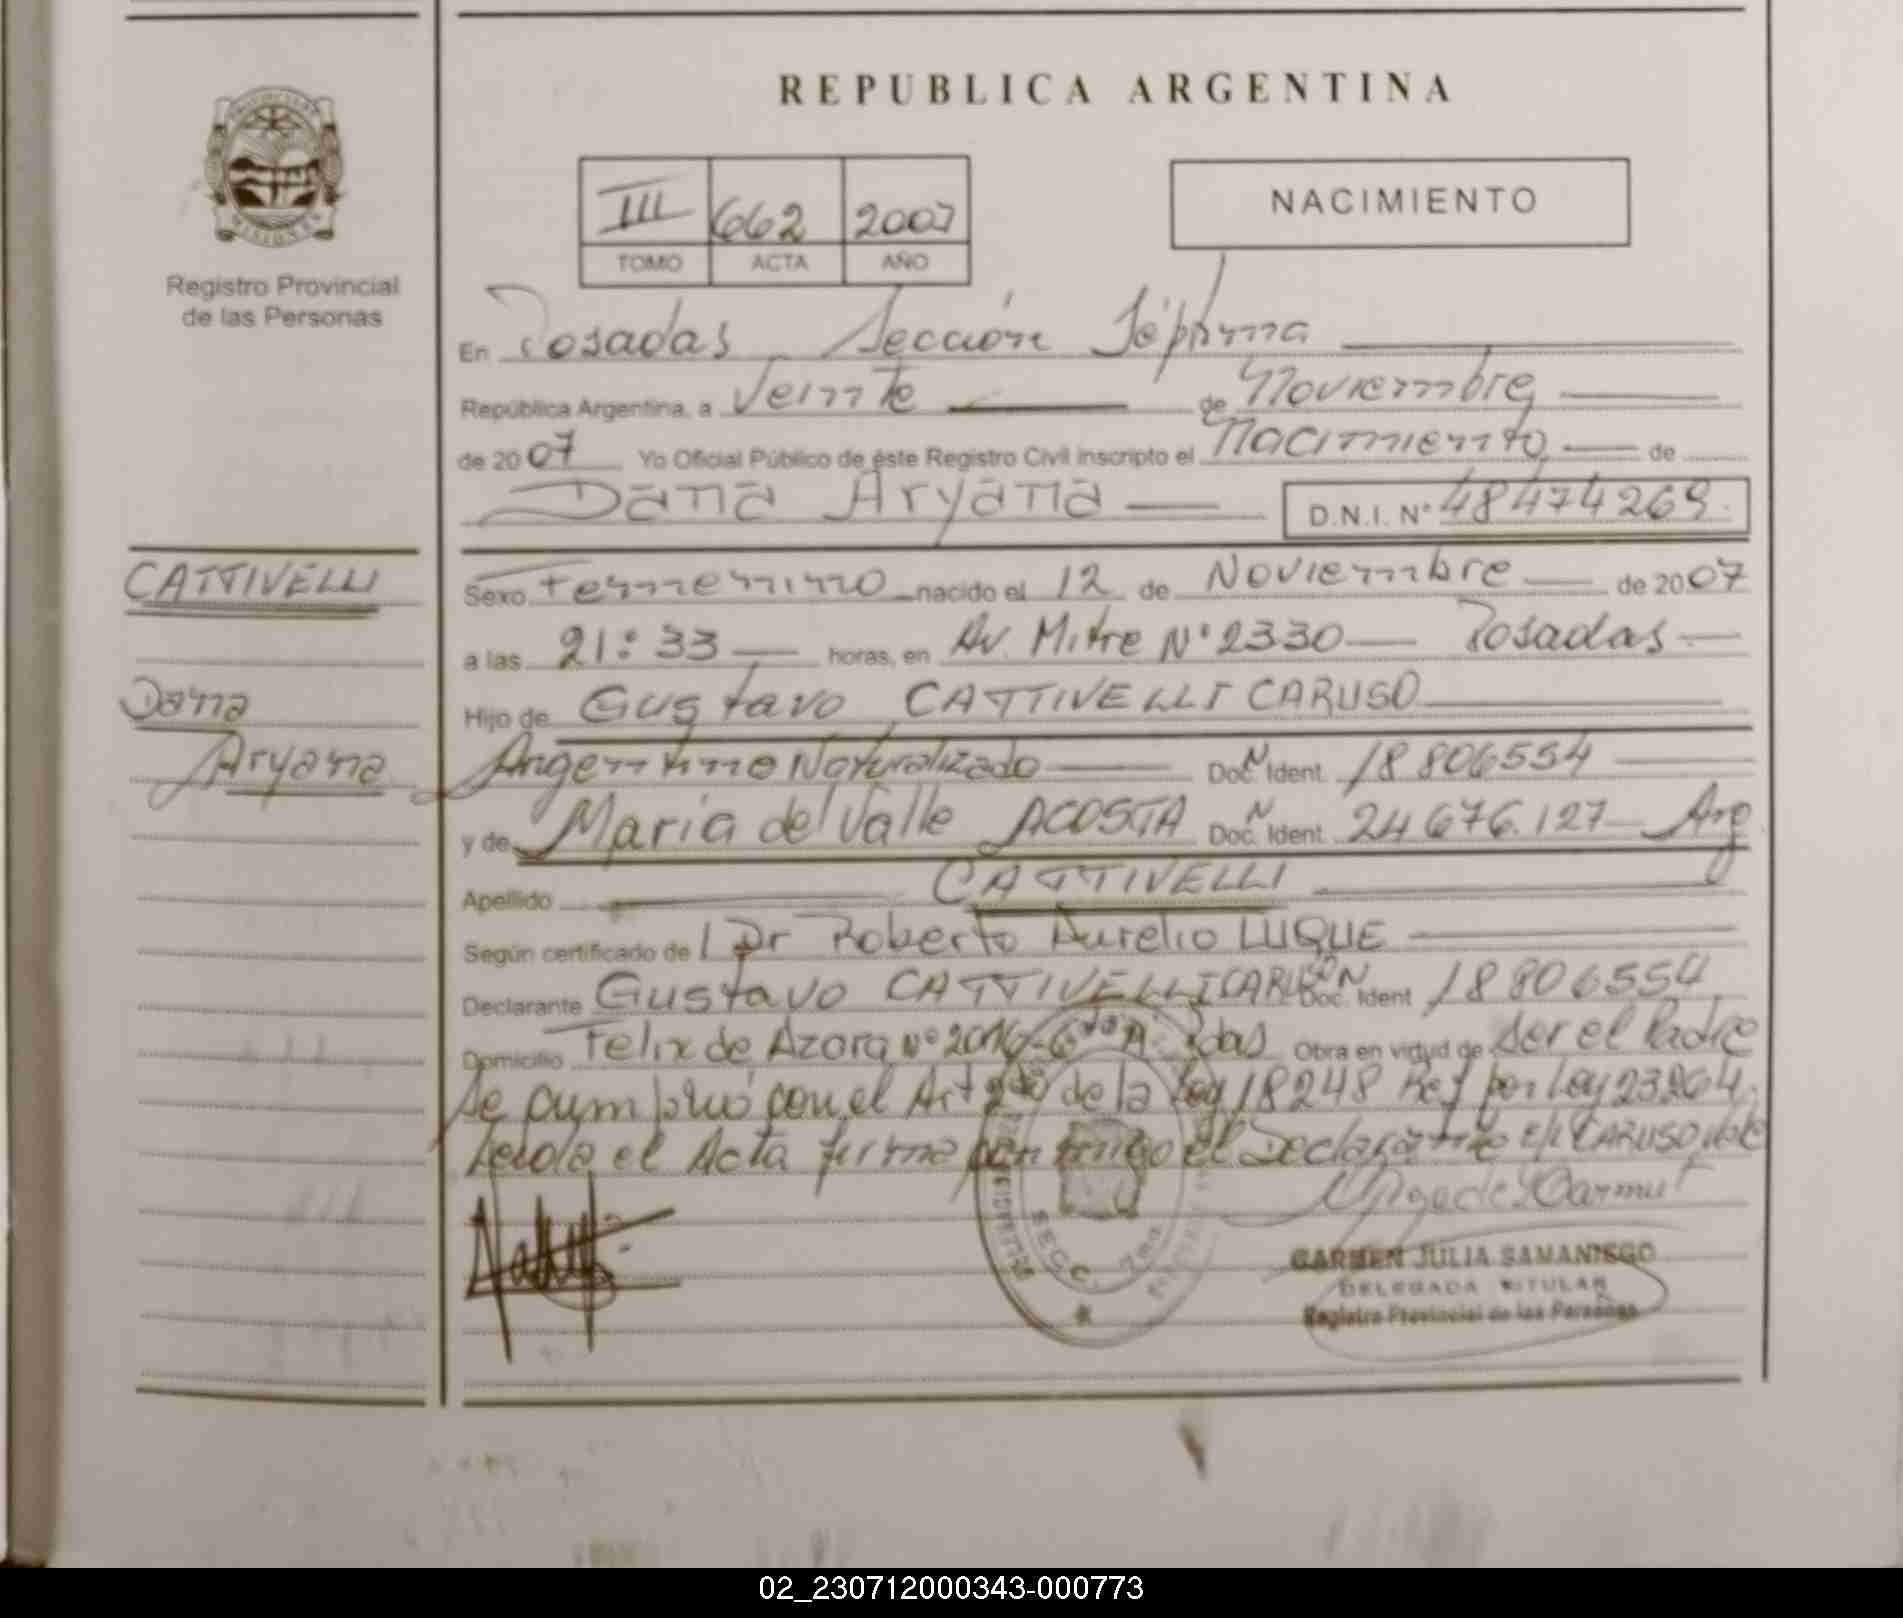 REPUBLICA ARGENTINA
III 662 2007
TOMO ACTA AÑO
NACIMIENTO
Registro Provincial
de las Personas
En Posadas Sección Séptima
República Argentina, a Veinte de Noviembre
de 2007 Yo Oficial Público de éste Registro Civil inscripto el Nacimiento de
Dana Aryana D.N.I. Nº 48474269.
CATTIVELLI
Dana
Aryana
Sexo Femenino nacido el 12 de Noviembre de 2007
a las 21:33 horas, en Av. Mitre Nº 2330 Posadas
Hijo de Gustavo CATTIVELLI CARUSO
Argentino Naturalizado Doc. N Ident. 18806554
y de Maria del Valle ACOSTA Doc. N Ident. 24676.127 Arg
Apellido CATTIVELLI
Según certificado de l Dr Roberto Aurelio LUQUE
Declarante Gustavo CATTIVELLI CARUSO Doc. N Ident 18806554
Domicilio Felix de Azara Nº 2016 Pdas Obra en virtud de ser el Padre
Se cumplió con el Art 2do de la Ley 18248 Ref por Ley 23264.
Leida el Acta firma con migo el Declarante E/L CARUSO vale
SECC. 7ma
CARMEN JULIA SAMANIEGO
DELEGADA TITULAR
Registro Provincial de las Personas
02_230712000343-000773